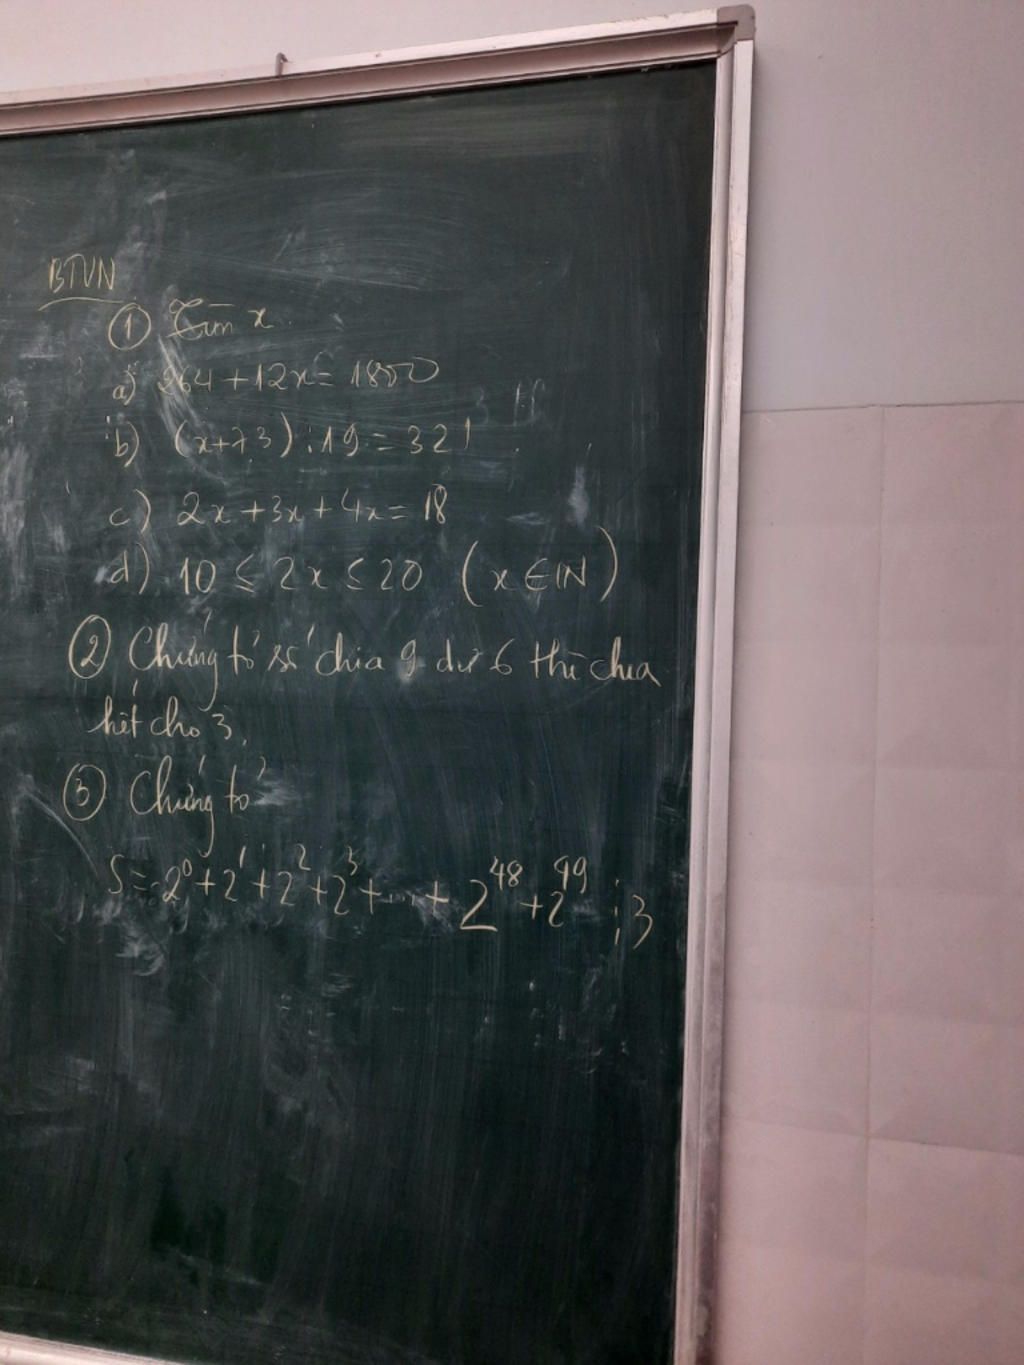 BTVN
① Tìm x
a) 264 + 12x = 1800
b) (x+73) : 19 = 321
c) 2x + 3x + 4x = 18
d) 10 ≤ 2x ≤ 20 (x ∈ ℕ)
② Chứng tỏ số chia 9 dư 6 thì chia
hết cho 3.
③ Chứng tỏ
S = 2⁰ + 2¹ + 2² + 2³ + ... + 2⁴⁸ + 2⁴⁹ ⋮ 3